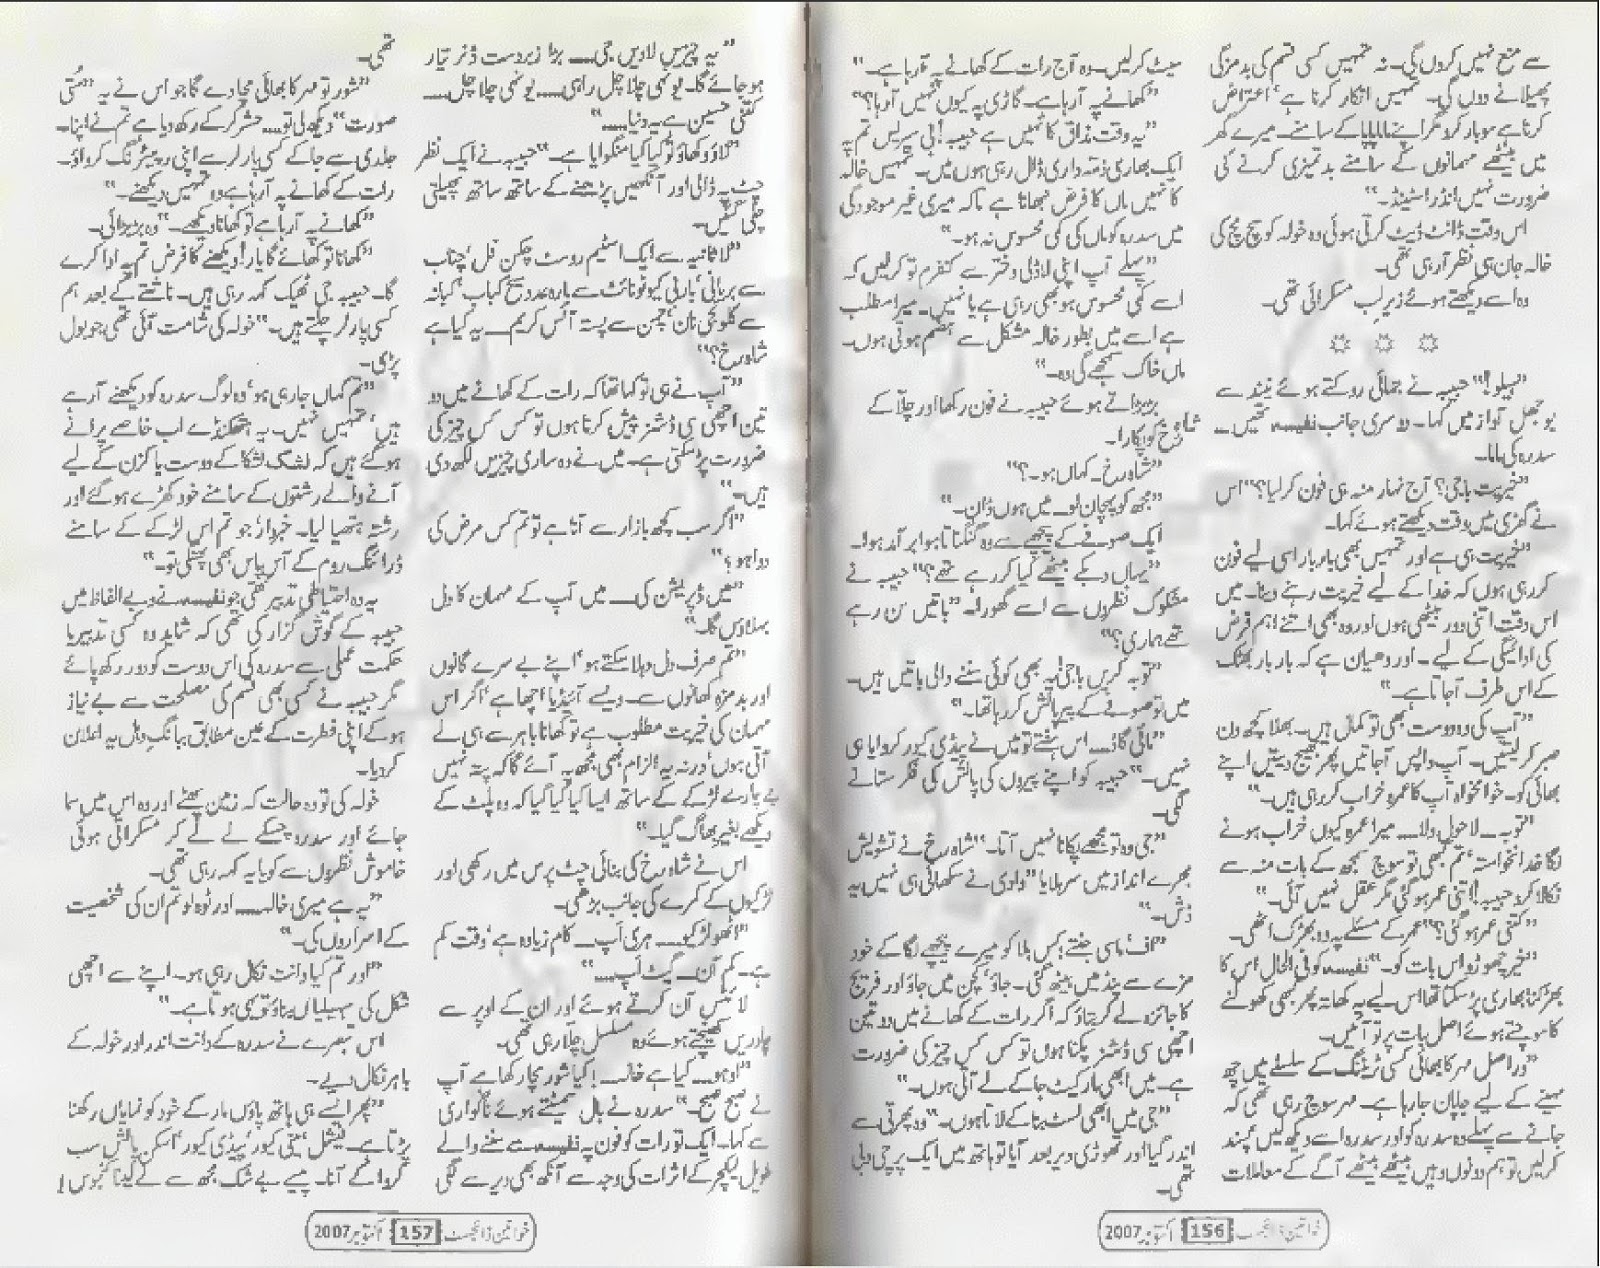 سے منع نہیں کروں گی۔ نہ تمہیں کسی قسم کی بدمزگی
پھیلانے دوں گی۔ تمہیں انکار کرنا ہے‘ اعتراض
کرنا ہے سو بار کرو مگر اپنے ماما پاپا کے سامنے۔ میرے گھر
میں بیٹھے مہمانوں کے سامنے بدتمیزی کرنے کی
ضرورت نہیں انڈر اسٹینڈ۔“
اس وقت ڈانٹ ڈپٹ کرتی ہوئی وہ خولہ کو سچ مچ کی
خالہ جان ہی نظر آ رہی تھی۔
وہ اسے دیکھتے ہوئے زیرلب مسکرائی تھی۔
”ہیلو!“ حبیبہ نے جمائی روکتے ہوئے نیند سے
بوجھل آواز میں کہا۔ دوسری جانب نفیسہ تھیں۔
سدرہ کی ماما۔
”خیریت باجی؟ آج نہار منہ ہی فون کر لیا؟“ اس
نے گھڑی میں وقت دیکھتے ہوئے کہا۔
”خیریت ہی ہے اور تمہیں بھی بار بار اسی لیے فون
کر رہی ہوں کہ خدا کے لیے خیریت رہنے دینا۔ میں
اس وقت اتنی دور بیٹھی ہوں اور وہ بھی اتنے اہم فرض
کی ادائیگی کے لیے۔ اور دھیان ہے کہ بار بار بھٹک
کے اس طرف آ جاتا ہے۔“
”آپ کی وہ دوست بھی تو کمال ہیں۔ بھلا کچھ دن
صبر کر لیتیں۔ آپ واپس آ جاتیں پھر بھیج دیتیں اپنے
بھائی کو۔ خوامخواہ آپ کا عمرہ خراب کر رہی ہیں۔“
”توبہ۔ لاحول ولا۔۔۔ میرا عمرہ کیوں خراب ہونے
لگا خدانخواستہ‘ تم بھی تو سوچ سمجھ کے بات منہ سے
نکالا کرو حبیبہ! اتنی عمر ہو گئی مگر عقل نہیں آئی۔“
”کتنی عمر ہو گئی؟“ عمر کے مسئلے پہ وہ بھڑک اٹھی۔
”خیر چھوڑو اس بات کو۔“ نفیسہ کو فی الحال اس کا
بھڑکنا بھاری پڑ سکتا تھا اس لیے یہ کھاتہ پھر کبھی کھولنے
کا سوچتے ہوئے اصل بات پر تو آئیں۔
”دراصل مہر کا بھائی کسی ٹریننگ کے سلسلے میں چھ
مہینے کے لیے جاپان جا رہا ہے۔ مہر سوچ رہی تھی کہ
جانے سے پہلے وہ سدرہ کو اور سدرہ اسے دیکھ لیں پسند
کر لیں تو ہم دونوں وہیں بیٹھے بیٹھے آگے کے معاملات
سیٹ کر لیں۔ وہ آج رات کے کھانے پہ آ رہا ہے۔“
”کھانے پہ آ رہا ہے۔ گاڑی پہ کیوں نہیں آ رہا؟“
”یہ وقت مذاق کا نہیں ہے حبیبہ! بی سیریس تم پہ
ایک بھاری ذمہ داری ڈال رہی ہوں میں۔ تمہیں خالہ
کا نہیں ماں کا فرض نبھانا ہے تاکہ میری غیر موجودگی
میں سدرہ کو ماں کی کمی محسوس نہ ہو۔“
”پہلے آپ اپنی لاڈلی دختر سے کنفرم تو کر لیں کہ
اسے کمی محسوس ہو بھی رہی ہے یا نہیں۔ میرا مطلب
ہے اسے میں بطور خالہ مشکل سے ہضم ہوتی ہوں۔
ماں خاک سمجھے گی وہ۔“
بڑبڑاتے ہوئے حبیبہ نے فون رکھا اور چلا کے
شاہ رخ کو پکارا۔
”شاہ رخ۔ کہاں ہو۔؟“
”مجھ کو پہچان لو۔ میں ہوں ڈان۔“
ایک صوفے کے پیچھے سے وہ گنگناتا ہوا برآمد ہوا۔
”یہاں دبکے بیٹھے کیا کر رہے تھے؟“ حبیبہ نے
مشکوک نظروں سے اسے گھورا۔ ”باتیں سن رہے
تھے ہماری؟“
”توبہ کریں باجی‘ یہ بھی کوئی سننے والی باتیں ہیں۔
میں تو صوفے کے پیر پالش کر رہا تھا۔“
”مائی گاڈ۔۔۔ اس ہفتے تو میں نے پیڈی کیور کروایا ہی
نہیں۔“ حبیبہ کو اپنے پیروں کی پالش کی فکر ستانے
لگی۔
”جی وہ تو مجھے پکانا نہیں آتا۔“ شاہ رخ نے تشویش
بھرے انداز میں سر ہلایا ”دادی نے سکھائی ہی نہیں یہ
ڈش۔“
”اف‘ ماسی جنتے! کس بلا کو میرے پیچھے لگا کے خود
مزے سے پنڈ میں بیٹھ گئی۔ جاؤ‘ کچن میں جاؤ اور فریج
کا جائزہ لے کر بتاؤ کہ اگر رات کے کھانے میں دو تین
اچھی سی ڈشز پکنا ہوں تو کس کس چیز کی ضرورت
ہے۔ میں ابھی مارکیٹ جا کے لے آتی ہوں۔“
”جی میں ابھی لسٹ بنا کے لاتا ہوں۔“ وہ پھرتی سے
اندر گیا اور تھوڑی دیر بعد آیا تو ہاتھ میں ایک پرچی دبی
تھی۔
خواتین ڈائجسٹ 156 اکتوبر 2007
”یہ چیزیں لا دیں جی۔۔۔ بڑا زبردست ڈنر تیار
ہو جائے گا۔ یونہی چلا چل راہی۔۔۔ یونہی چلا چل۔۔۔
کتنی حسین ہے یہ دنیا۔۔۔“
”لاؤ دکھاؤ تو کیا کیا منگوایا ہے۔“ حبیبہ نے ایک نظر
چٹ پہ ڈالی اور آنکھیں پڑھنے کے ساتھ ساتھ پھیلتی
چلی گئیں۔
”لاثانیہ سے ایک اسٹیم روسٹ چکن فل‘ چناب
سے بریانی‘ باربی کیو ٹونائٹ سے بارہ عدد سیخ کباب‘ کبانہ
سے کلونجی نان‘ چمن سے پستہ آئس کریم۔۔۔ یہ کیا ہے
شاہ رخ؟“
”آپ نے ہی تو کہا تھا کہ رات کے کھانے میں دو
تین اچھی سی ڈشز پیش کرنا ہوں تو کس کس چیز کی
ضرورت پڑ سکتی ہے۔ میں نے وہ ساری چیزیں لکھ دی
ہیں۔“
”اگر سب کچھ بازار سے آنا ہے تو تم کس مرض کی
دوا ہو؟“
”میں ڈپریشن کی۔۔۔ میں آپ کے مہمان کا دل
بہلاؤں گا۔“
”تم صرف دل دہلا سکتے ہو‘ اپنے بے سرے گانوں
اور بدمزہ کھانوں سے۔ ویسے آئیڈیا اچھا ہے‘ اگر اس
مہمان کی خیریت مطلوب ہے تو کھانا باہر سے ہی لے
آتی ہوں‘ ورنہ یہ الزام بھی مجھ پہ آئے گا کہ پتہ نہیں
بے چارے لڑکے کے ساتھ ایسا کیا کیا گیا کہ وہ پلٹ کے
دیکھے بغیر بھاگ گیا۔“
اس نے شاہ رخ کی بنائی چٹ پرس میں رکھی اور
لڑکیوں کے کمرے کی جانب بڑھی۔
”اٹھو لڑکیو۔۔۔ ہری اپ۔۔۔ کام زیادہ ہے‘ وقت کم
ہے۔ کم آن۔ گیٹ اپ۔۔۔“
لائٹس آن کرتے ہوئے اور ان کے اوپر سے
چادریں کھینچتے ہوئے وہ مسلسل چلا رہی تھی۔
”اوہو۔۔۔ کیا ہے خالہ۔۔۔! کیا شور مچا رکھا ہے آپ
نے صبح صبح۔“ سدرہ نے بال سمیٹتے ہوئے ناگواری
سے کہا۔ ایک تو رات کو فون پہ نفیسہ سے سننے والے
طویل لیکچر کے اثرات کی وجہ سے آنکھ بھی دیر سے لگی
تھی۔
”شور تو مہر کا بھائی مچا دے گا جو اس نے یہ ”مٹی
صورت“ دیکھ لی تو۔۔۔ حشر کر کے رکھ دیا ہے تم نے اپنا۔
جلدی سے جا کے کسی پارلر سے اپنی رپیئرنگ کرواؤ۔
رات کے کھانے پہ آ رہا ہے وہ تمہیں دیکھنے۔“
”کھانے پہ آ رہا ہے تو کھانا دیکھے۔“ وہ بڑبڑائی۔
”کھانا تو کھائے گا یار! دیکھنے کا فرض تم پہ ادا کرے
گا۔ حبیبہ جی ٹھیک کہہ رہی ہیں۔ ناشتے کے بعد ہم
کسی پارلر چلتے ہیں۔“ خولہ کی شامت آئی تھی جو بول
پڑی۔
”تم کہاں جا رہی ہو‘ وہ لوگ سدرہ کو دیکھنے آ رہے
ہیں‘ تمہیں نہیں۔ یہ ہتھکنڈے اب خاصے پرانے
ہو گئے ہیں کہ لشک لشکا کے دوست یا کزن کے لیے
آنے والے رشتوں کے سامنے خود کھڑے ہو گئے اور
رشتہ ہتھیا لیا۔ خبردار‘ جو تم اس لڑکے کے سامنے
ڈرائنگ روم کے آس پاس بھی پھٹکی تو۔“
یہ وہ احتیاطی تدبیر تھی جو نفیسہ نے دبے الفاظ میں
حبیبہ کے گوش گزار کی تھی کہ شاید وہ کسی تدبیر یا
حکمت عملی سے سدرہ کی اس دوست کو دور رکھ پائے
مگر حبیبہ نے کسی بھی قسم کی مصلحت سے بے نیاز
ہو کے اپنی فطرت کے عین مطابق ببانگ دہل یہ اعلان
کر دیا۔
خولہ کی تو وہ حالت کہ زمین پھٹے اور وہ اس میں سما
جائے اور سدرہ چسکے لے لے کر مسکراتی ہوئی
خاموش نظروں سے گویا یہ کہہ رہی تھی۔
”یہ ہے میری خالہ۔۔۔ اور ٹوہ لو تم ان کی شخصیت
کے اسراروں کی۔“
”اور تم کیا دانت نکال رہی ہو۔ اپنے سے اچھی
شکل کی سہیلیاں بناؤ تو یہی ہوتا ہے۔“
اس تبصرے نے سدرہ کے دانت اندر اور خولہ کے
باہر نکال دیے۔
”پھر ایسے ہی ہاتھ پاؤں مار کے خود کو نمایاں رکھنا
پڑتا ہے۔ فیشل‘ مینی کیور‘ پیڈی کیور‘ اسکن پالش سب
کروا کے آنا۔ پیسے بے شک مجھ سے لے لینا کنجوس!
خواتین ڈائجسٹ 157 اکتوبر 2007